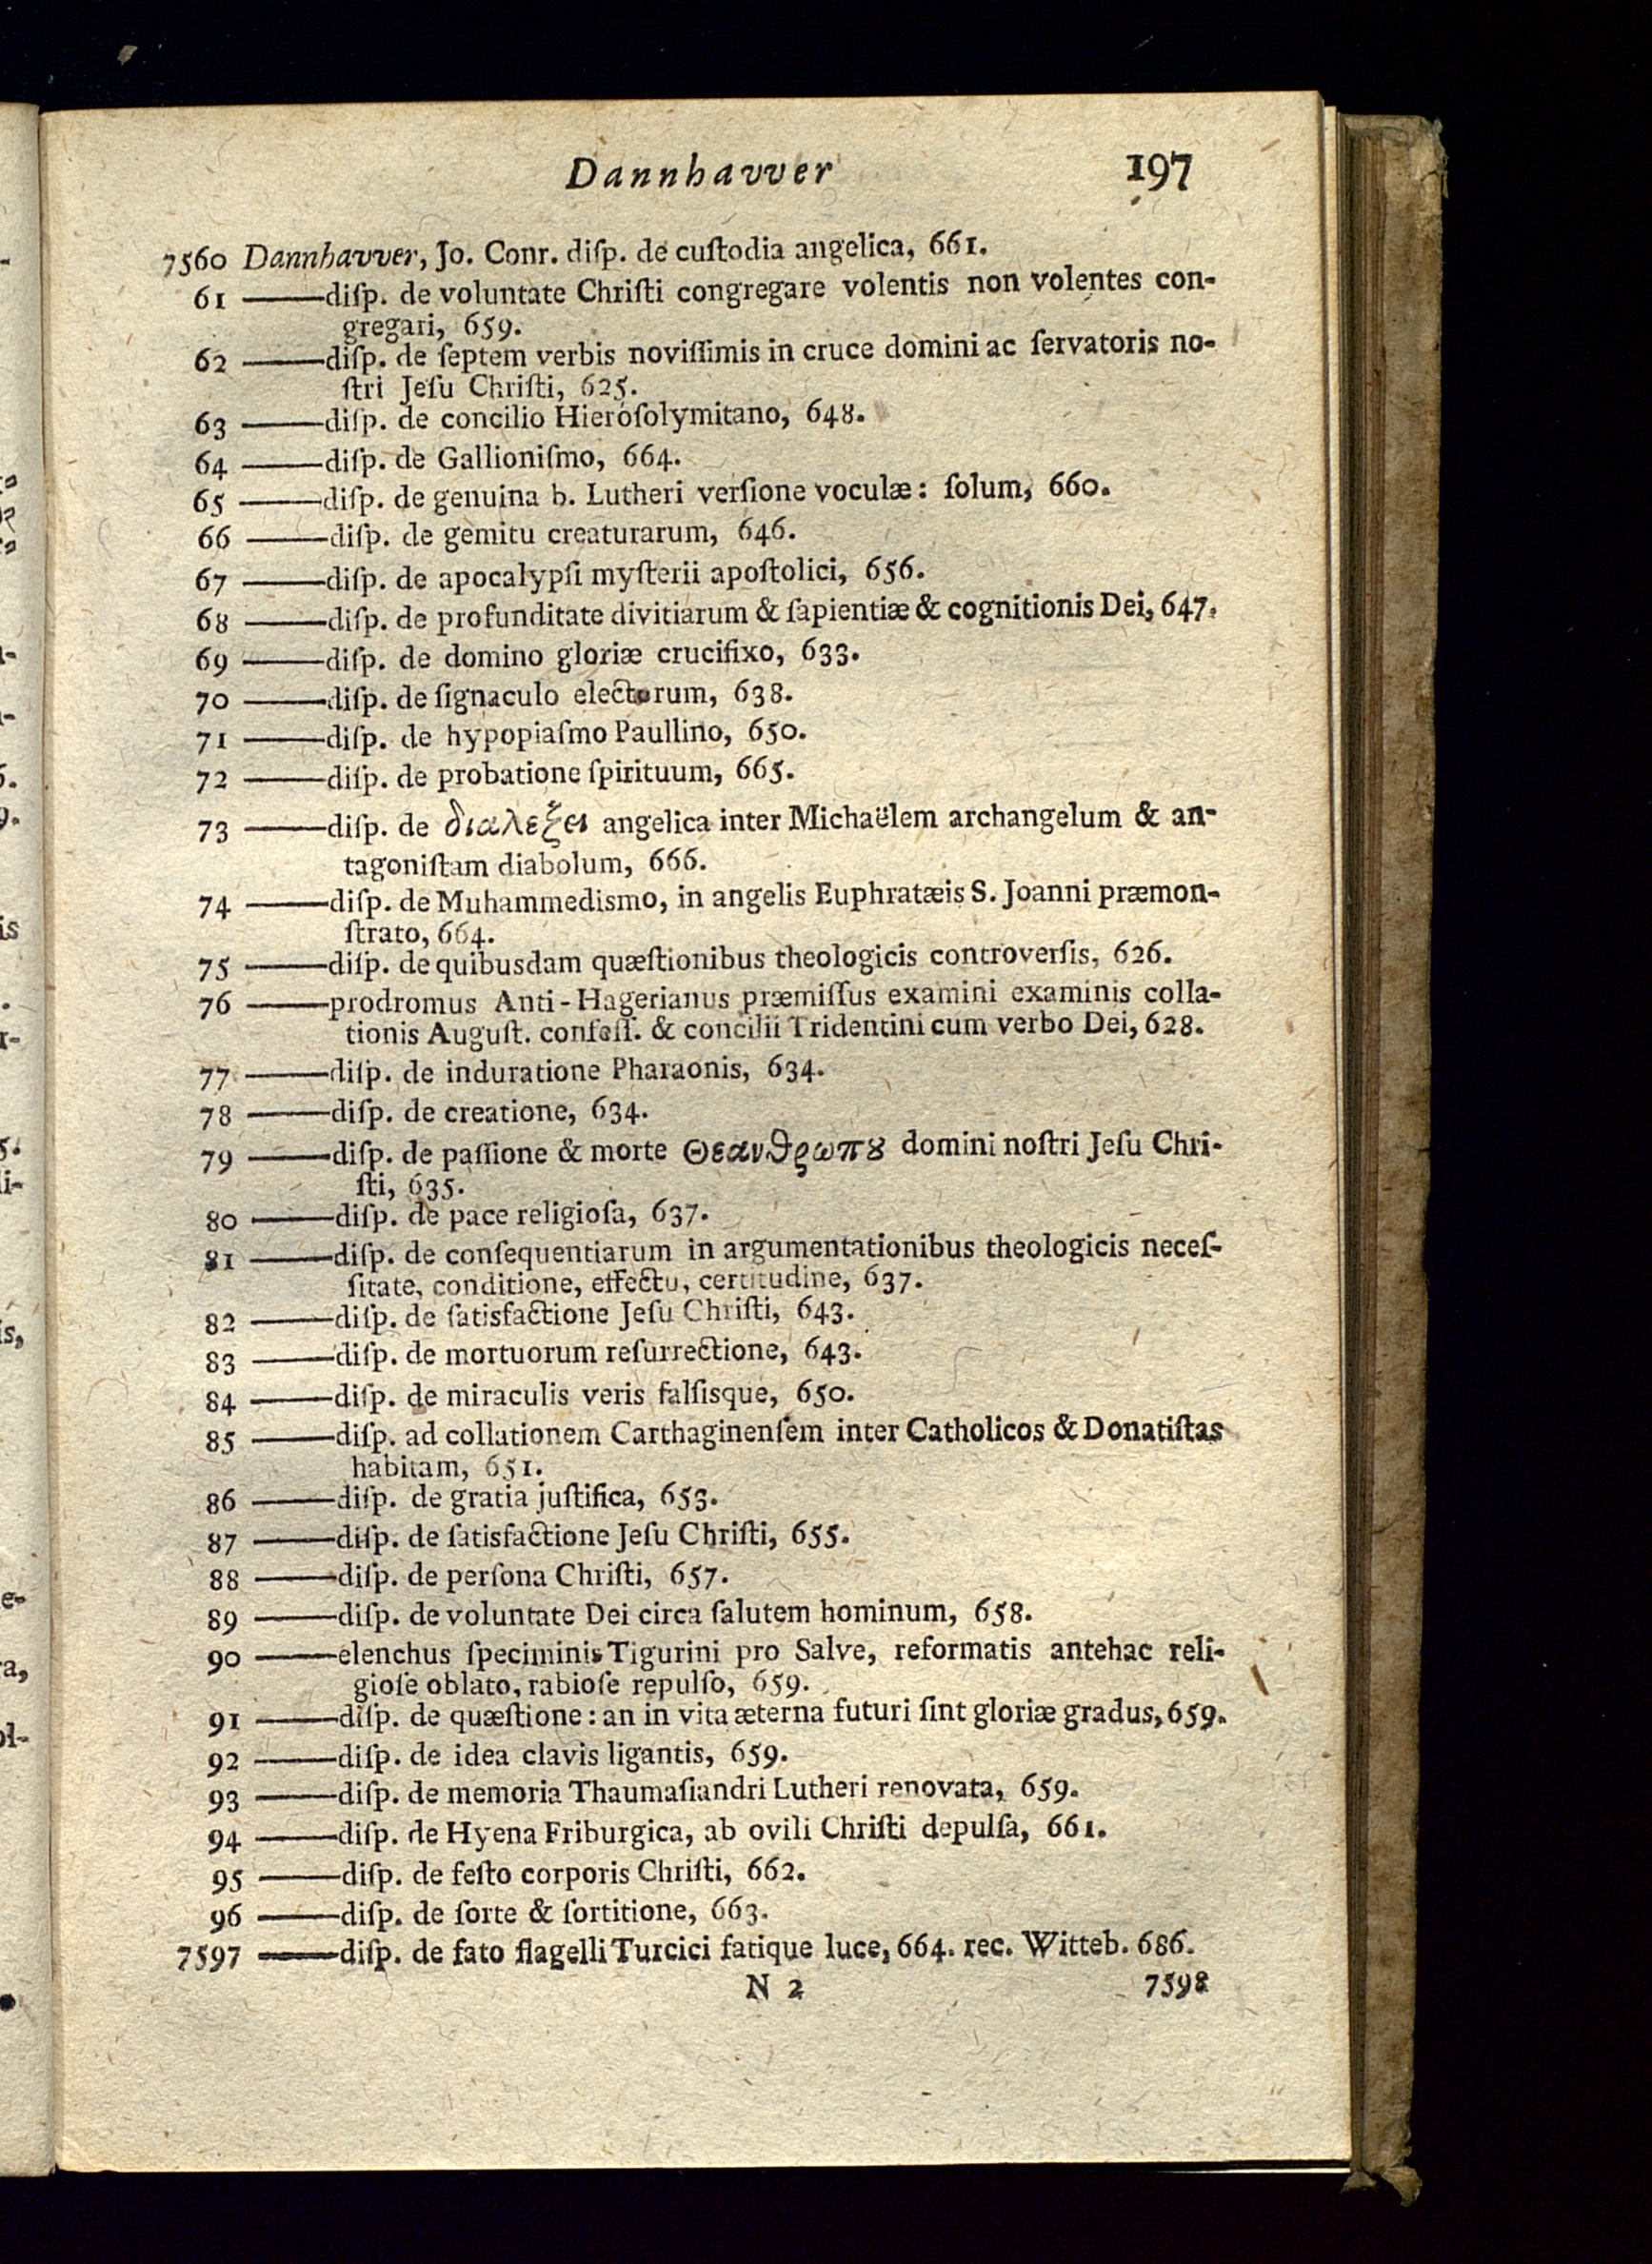 Dannhavver 197
7560 Dannhavver, Jo. Conr. diſp. de cuſtodia angelica, 661.
61 ——diſp. de voluntate Chriſti congregare volentis non volentes con-
gregari, 659.
62 ——diſp. de ſeptem verbis noviſſimis in cruce domini ac ſervatoris no-
ſtri Jeſu Chriſti, 625.
63 ——diſp. de concilio Hieroſolymitano, 648.
64 ——diſp. de Gallioniſmo, 664.
65 ——diſp. de genuina b. Lutheri verſione voculæ: ſolum, 660.
66 ——diſp. de gemitu creaturarum, 646.
67 ——diſp. de apocalypſi myſterii apoſtolici, 656.
68 ——diſp. de profunditate divitiarum & ſapientiæ & cognitionis Dei, 647.
69 ——diſp. de domino gloriæ crucifixo, 633.
70 ——diſp. de ſignaculo electorum, 638.
71 ——diſp. de hypopiaſmo Paullino, 650.
72 ——diſp. de probatione ſpirituum, 665.
73 ——diſp. de διαλεξει angelica inter Michaëlem archangelum & an-
tagoniſtam diabolum, 666.
74 ——diſp. de Muhammedismo, in angelis Euphratæis S. Joanni præmon-
ſtrato, 664.
75 ——diſp. de quibusdam quæſtionibus theologicis controverſis, 626.
76 ——prodromus Anti-Hagerianus præmiſſus examini examinis colla-
tionis Auguſt. confeſſ. & concilii Tridentini cum verbo Dei, 628.
77 ——diſp. de induratione Pharaonis, 634.
78 ——diſp. de creatione, 634.
79 ——diſp. de paſſione & morte Θεανθρωπȣ domini noſtri Jeſu Chri-
ſti, 635.
80 ——diſp. de pace religioſa, 637.
81 ——diſp. de conſequentiarum in argumentationibus theologicis neceſ-
ſitate, conditione, effectu, certitudine, 637.
82 ——diſp. de ſatisfactione Jeſu Chriſti, 643.
83 ——diſp. de mortuorum reſurrectione, 643.
84 ——diſp. de miraculis veris falſisque, 650.
85 ——diſp. ad collationem Carthaginenſem inter Catholicos & Donatiſtas
habitam, 651.
86 ——diſp. de gratia juſtifica, 653.
87 ——diſp. de ſatisfactione Jeſu Chriſti, 655.
88 ——diſp. de perſona Chriſti, 657.
89 ——diſp. de voluntate Dei circa ſalutem hominum, 658.
90 ——elenchus ſpeciminis Tigurini pro Salve, reformatis antehac reli-
gioſe oblato, rabioſe repulſo, 659.
91 ——diſp. de quæſtione: an in vita æterna futuri ſint gloriæ gradus, 659.
92 ——diſp. de idea clavis ligantis, 659.
93 ——diſp. de memoria Thaumaſiandri Lutheri renovata, 659.
94 ——diſp. de Hyena Friburgica, ab ovili Chriſti depulſa, 661.
95 ——diſp. de feſto corporis Chriſti, 662.
96 ——diſp. de ſorte & ſortitione, 663.
7597 ——diſp. de fato flagelli Turcici fatique luce, 664. rec. Witteb. 686.
N 2 7598